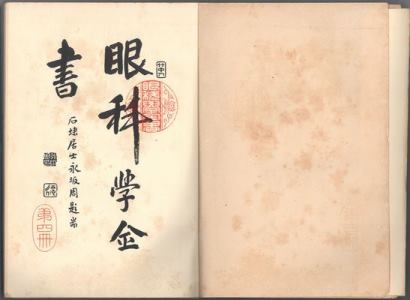 眼科学全
書
石埭居士永坂周題耑
第四冊